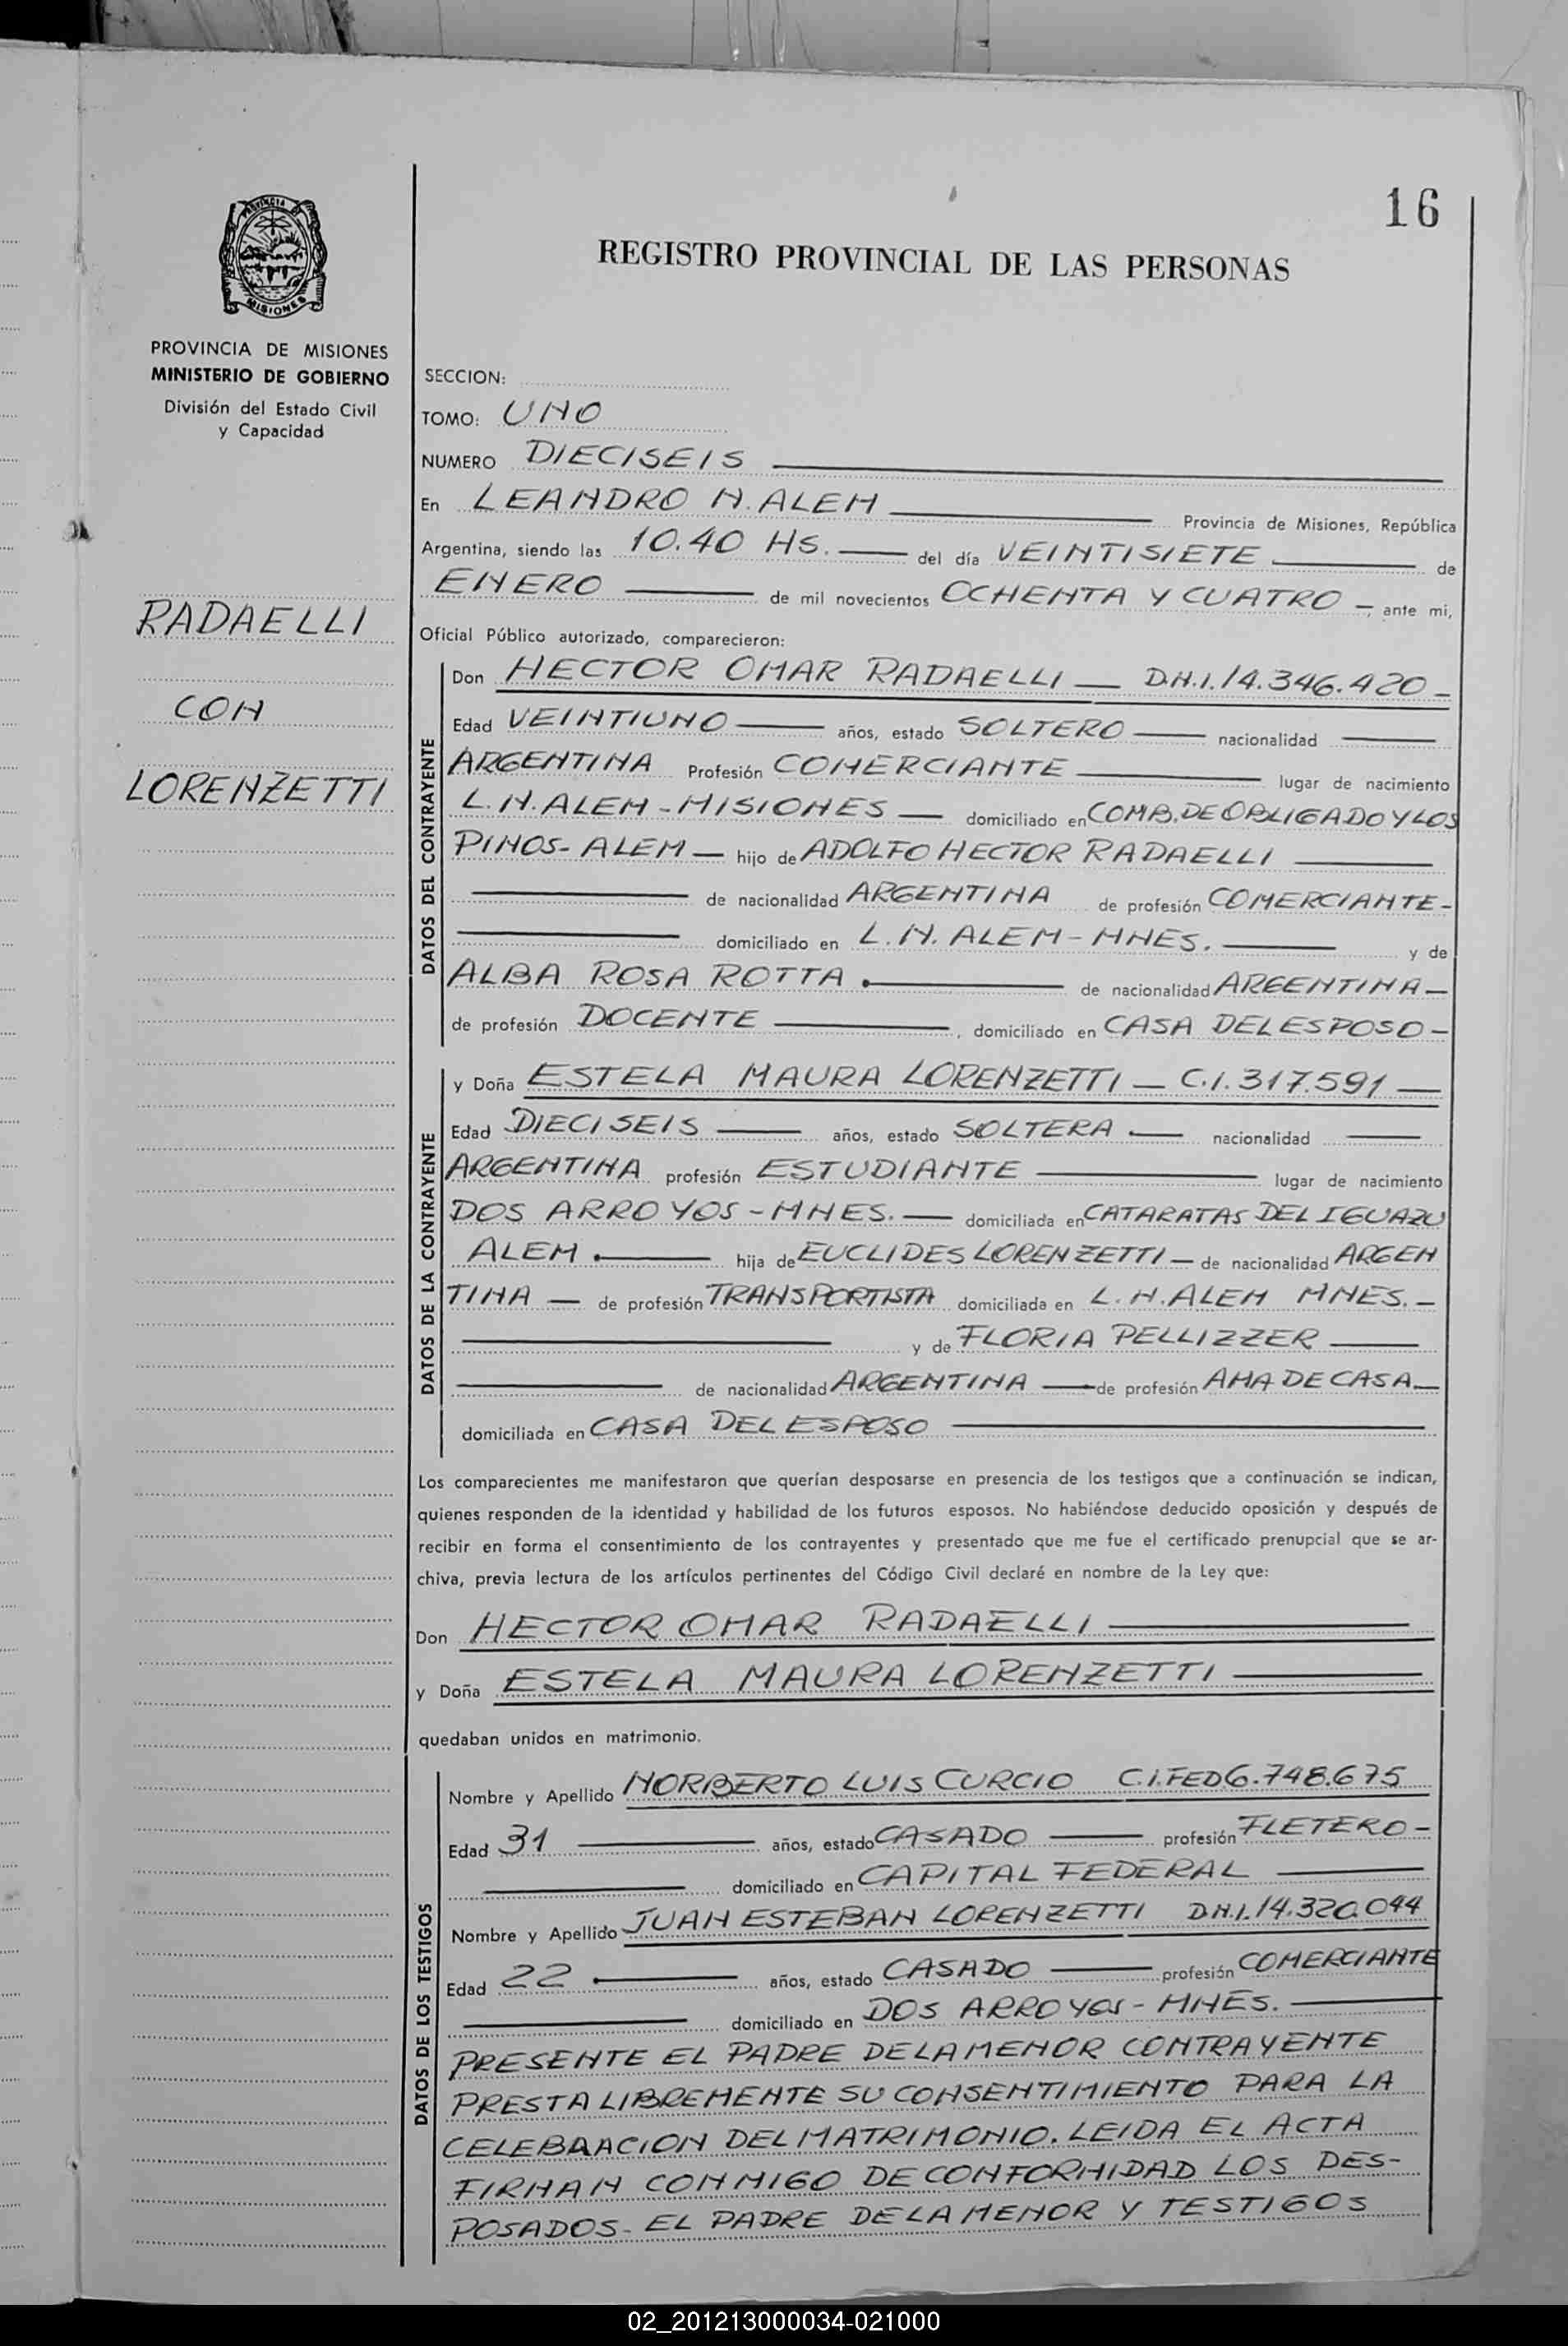 16
REGISTRO PROVINCIAL DE LAS PERSONAS
PROVINCIA DE MISIONES
MINISTERIO DE GOBIERNO
División del Estado Civil
y Capacidad
RADAELLI
CON
LORENZETTI
SECCION:
TOMO: UNO
NUMERO DIECISEIS
En LEANDRO N. ALEM Provincia de Misiones, República
Argentina, siendo las 10.40 HS. del día VEINTISIETE de
ENERO de mil novecientos OCHENTA Y CUATRO, ante mi,
Oficial Público autorizado, comparecieron:
DATOS DEL CONTRAYENTE
Don HECTOR OMAR RADAELLI — D.N.I. 14.346.420 -
Edad VEINTIUNO años, estado SOLTERO nacionalidad
ARGENTINA Profesión COMERCIANTE lugar de nacimiento
L.N. ALEM - MISIONES — domiciliado en COMB. DE OBLIGADO Y LOS
PINOS - ALEM — hijo de ADOLFO HECTOR RADAELLI
de nacionalidad ARGENTINA de profesión COMERCIANTE -
domiciliado en L. N. ALEM - MNES. y de
ALBA ROSA ROTTA de nacionalidad ARGENTINA —
de profesión DOCENTE, domiciliado en CASA DEL ESPOSO -
DATOS DE LA CONTRAYENTE
y Doña ESTELA MAURA LORENZETTI — C.I. 317.591 —
Edad DIECISEIS años, estado SOLTERA nacionalidad
ARGENTINA profesión ESTUDIANTE lugar de nacimiento
DOS ARROYOS - MNES. — domiciliada en CATARATAS DEL IGUAZU
ALEM. hija de EUCLIDES LORENZETTI — de nacionalidad ARGEN
TINA — de profesión TRANSPORTISTA domiciliada en L. N. ALEM MNES. -
y de FLORIA PELLIZZER
de nacionalidad ARGENTINA — de profesión AMA DE CASA —
domiciliada en CASA DEL ESPOSO
Los comparecientes me manifestaron que querían desposarse en presencia de los testigos que a continuación se indican,
quienes responden de la identidad y habilidad de los futuros esposos. No habiéndose deducido oposición y después de
recibir en forma el consentimiento de los contrayentes y presentado que me fue el certificado prenupcial que se ar-
chiva, previa lectura de los artículos pertinentes del Código Civil declaré en nombre de la Ley que:
Don HECTOR OMAR RADAELLI
y Doña ESTELA MAURA LORENZETTI
quedaban unidos en matrimonio.
DATOS DE LOS TESTIGOS
Nombre y Apellido NORBERTO LUIS CURCIO C.I. FED 6.748.675
Edad 31 años, estado CASADO profesión FLETERO -
domiciliado en CAPITAL FEDERAL
Nombre y Apellido JUAN ESTEBAN LORENZETTI D.N.I. 14.320.044
Edad 22 años, estado CASADO profesión COMERCIANTE
domiciliado en DOS ARROYOS - MNES.
PRESENTE EL PADRE DE LA MENOR CONTRAYENTE
PRESTA LIBREMENTE SU CONSENTIMIENTO PARA LA
CELEBRACION DEL MATRIMONIO. LEIDA EL ACTA
FIRMAN CONMIGO DE CONFORMIDAD LOS DES-
POSADOS - EL PADRE DE LA MENOR Y TESTIGOS
02_201213000034-021000